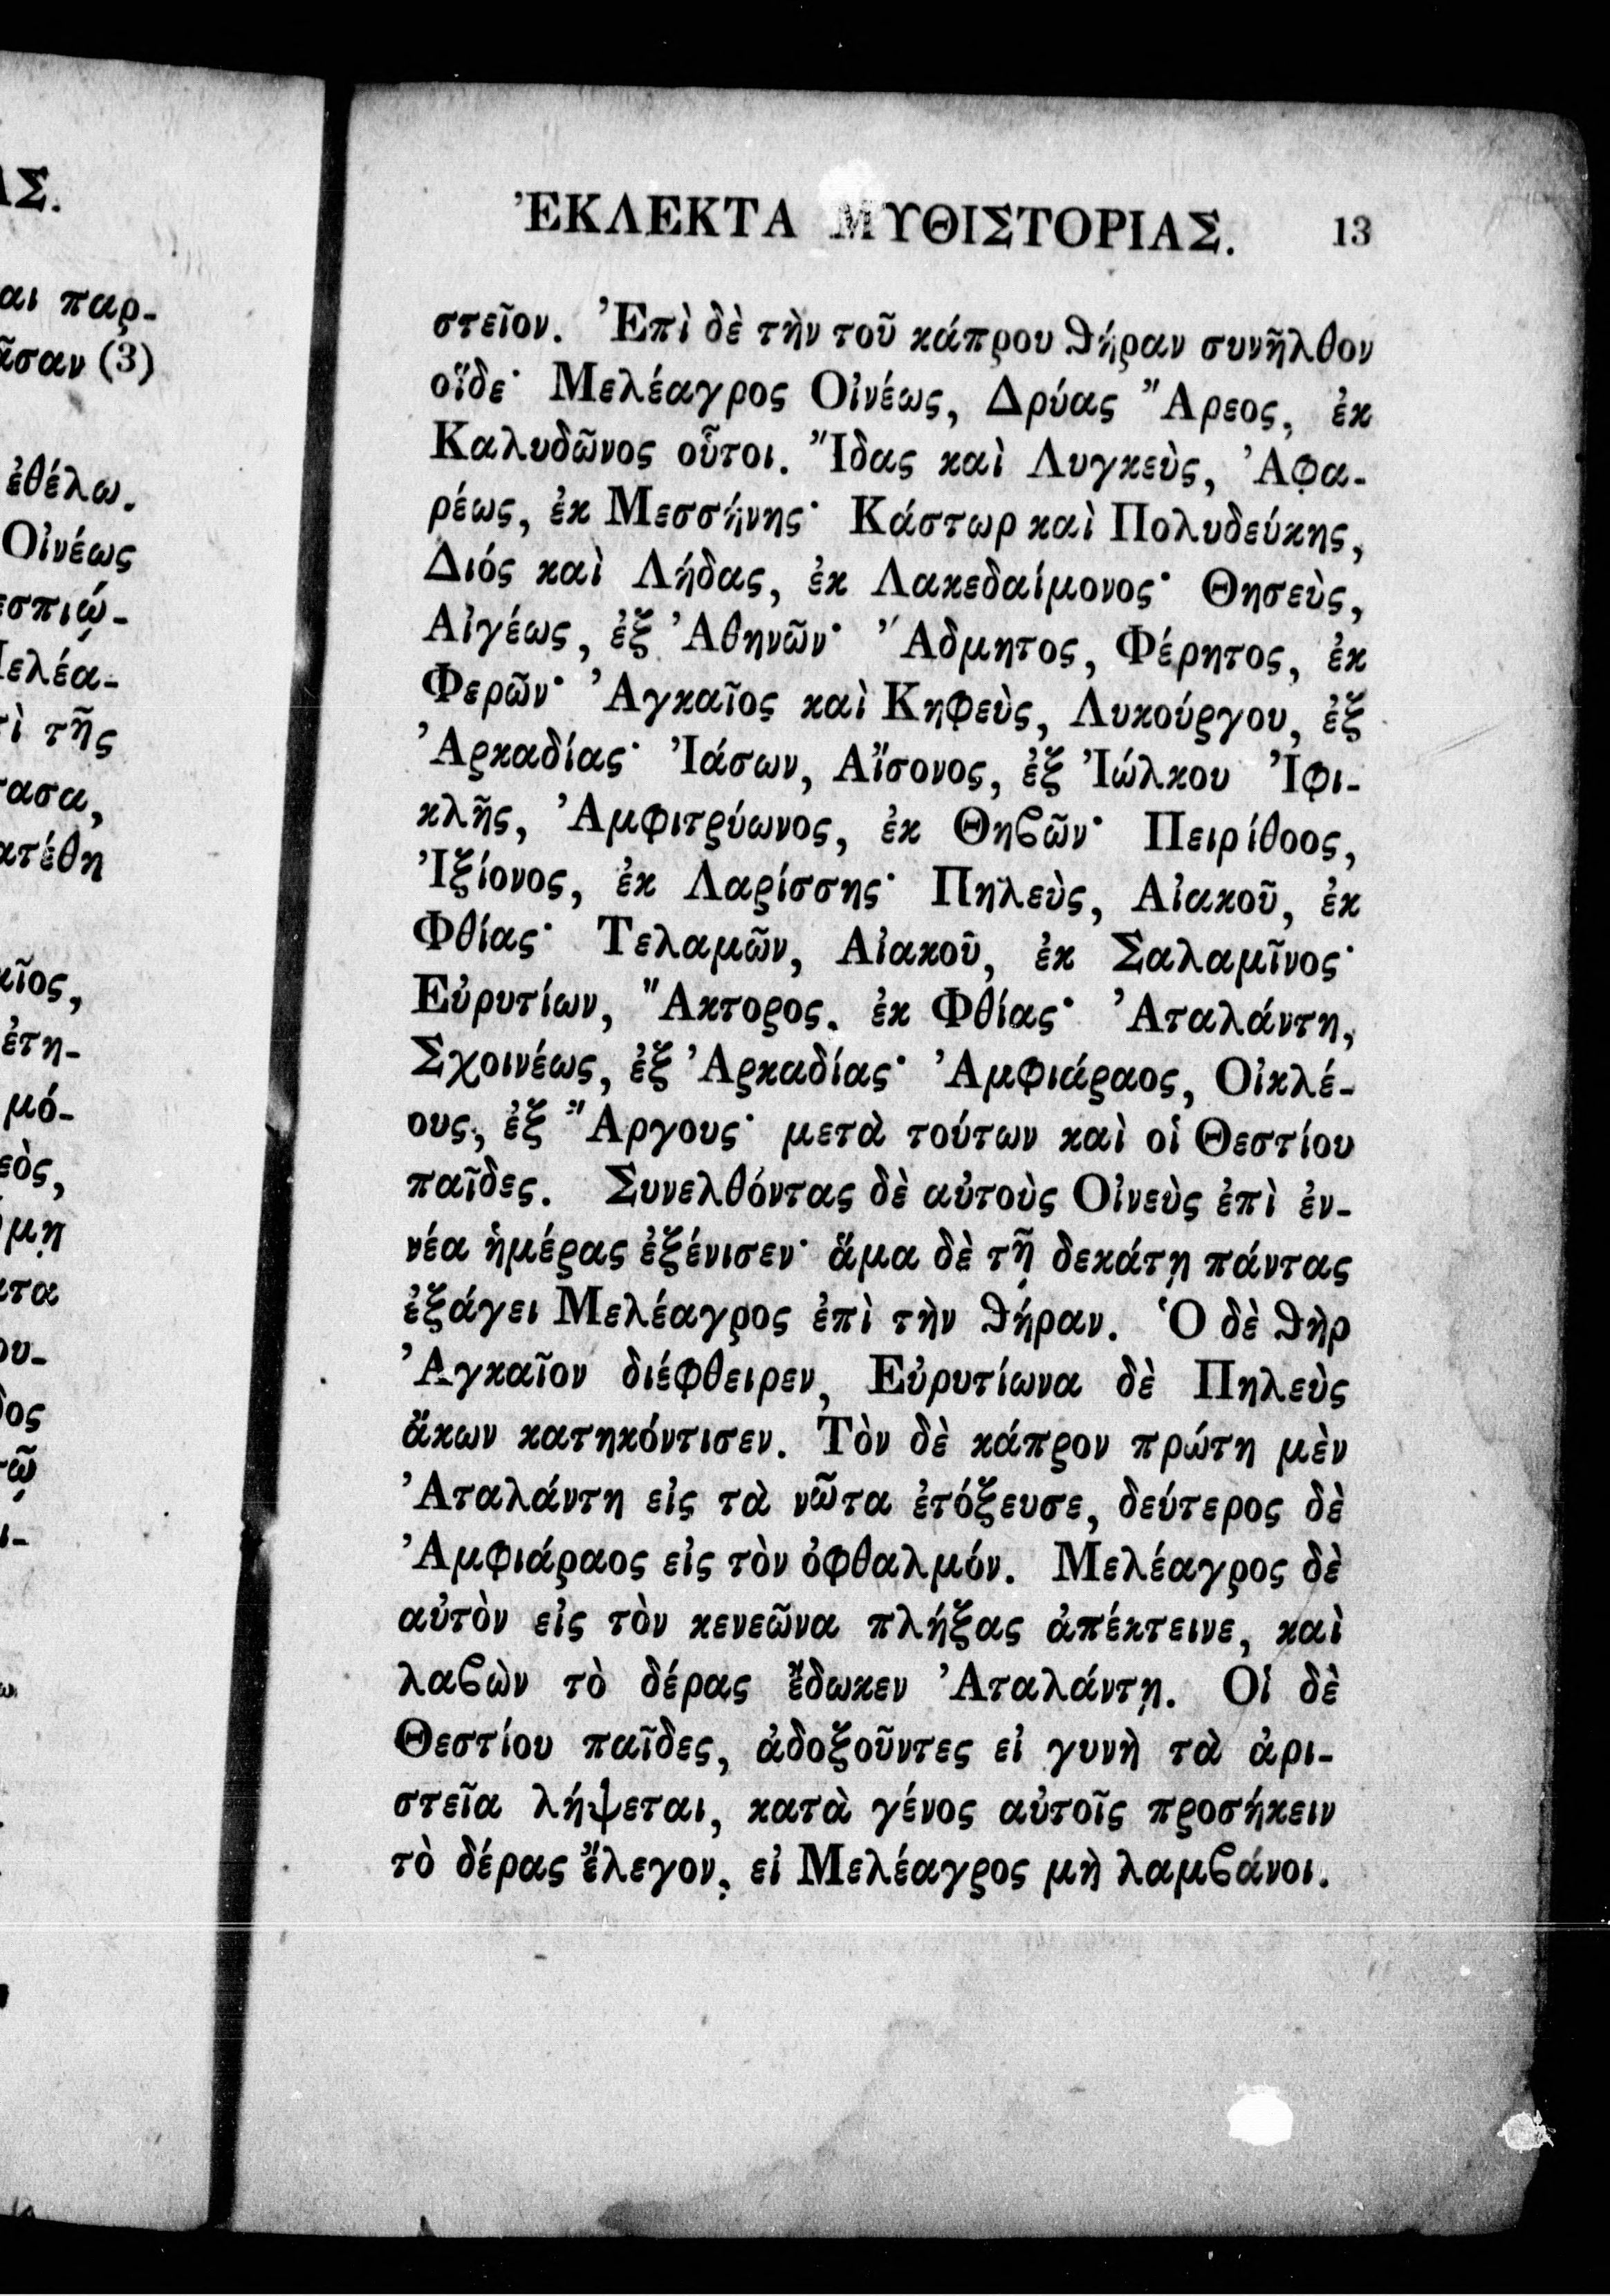 ἘΚΛΕΚΤΑ ΜΥΘΙΣΤΟΡΙΑΣ. 13
στεῖον. Ἐπὶ δὲ τὴν τοῦ κάπρου ϑήραν συνῆλθον
οἵδε· Μελέαγρος Οἰνέως, Δρύας Ἄρεος, ἐκ
Καλυδῶνος οὗτοι. Ἴδας καὶ Λυγκεὺς, Ἀφα-
ρέως, ἐκ Μεσσήνης· Κάστωρ καὶ Πολυδεύκης,
Διός καὶ Λήδας, ἐκ Λακεδαίμονος· Θησεὺς,
Αἰγέως, ἐξ Ἀθηνῶν· Ἄδμητος, Φέρητος, ἐκ
Φερῶν· Ἀγκαῖος καὶ Κηφεὺς, Λυκούργου, ἐξ
Ἀρκαδίας· Ἰάσων, Αἴσονος, ἐξ Ἰώλκου· Ἰφι-
κλῆς, Ἀμφιτρύωνος, ἐκ Θηϐῶν· Πειρίθοος,
Ἰξίονος, ἐκ Λαρίσσης· Πηλεὺς, Αἰακοῦ, ἐκ
Φθίας· Τελαμῶν, Αἰακοῦ, ἐκ Σαλαμῖνος·
Εὐρυτίων, Ἄκτορος, ἐκ Φθίας· Ἀταλάντη,
Σχοινέως, ἐξ Ἀρκαδίας· Ἀμφιάραος, Οἰκλέ-
ους, ἐξ Ἄργους· μετὰ τούτων καὶ οἱ Θεστίου
παῖδες. Συνελθόντας δὲ αὐτοὺς Οἰνεὺς ἐπὶ ἐν-
νέα ἡμέρας ἐξένισεν· ἅμα δὲ τῇ δεκάτῃ πάντας
ἐξάγει Μελέαγρος ἐπὶ τὴν ϑήραν. Ὁ δὲ ϑὴρ
Ἀγκαῖον διέφθειρεν, Εὐρυτίωνα δὲ Πηλεὺς
ἄκων κατηκόντισεν. Τὸν δὲ κάπρον πρώτη μὲν
Ἀταλάντη εἰς τὰ νῶτα ἐτόξευσε, δεύτερος δὲ
Ἀμφιάραος εἰς τὸν ὀφθαλμόν. Μελέαγρος δὲ
αὐτὸν εἰς τὸν κενεῶνα πλήξας ἀπέκτεινε, καὶ
λαϐὼν τὸ δέρας ἔδωκεν Ἀταλάντῃ. Οἱ δὲ
Θεστίου παῖδες, ἀδοξοῦντες εἰ γυνὴ τὰ ἀρι-
στεῖα λήψεται, κατὰ γένος αὐτοῖς προσήκειν
τὸ δέρας ἔλεγον, εἰ Μελέαγρος μὴ λαμϐάνοι.
ΑΣ.
αι παρ-
ᾶσαν (3)
ἐθέλω.
Οἰνέως
εσπιῴ-
ελέα-
ὶ τῆς
τασα,
ατέθη
κῖος,
ἐτη-
μό-
εὸς,
μῃ
ατα
ου-
δος
τῷ
ι-